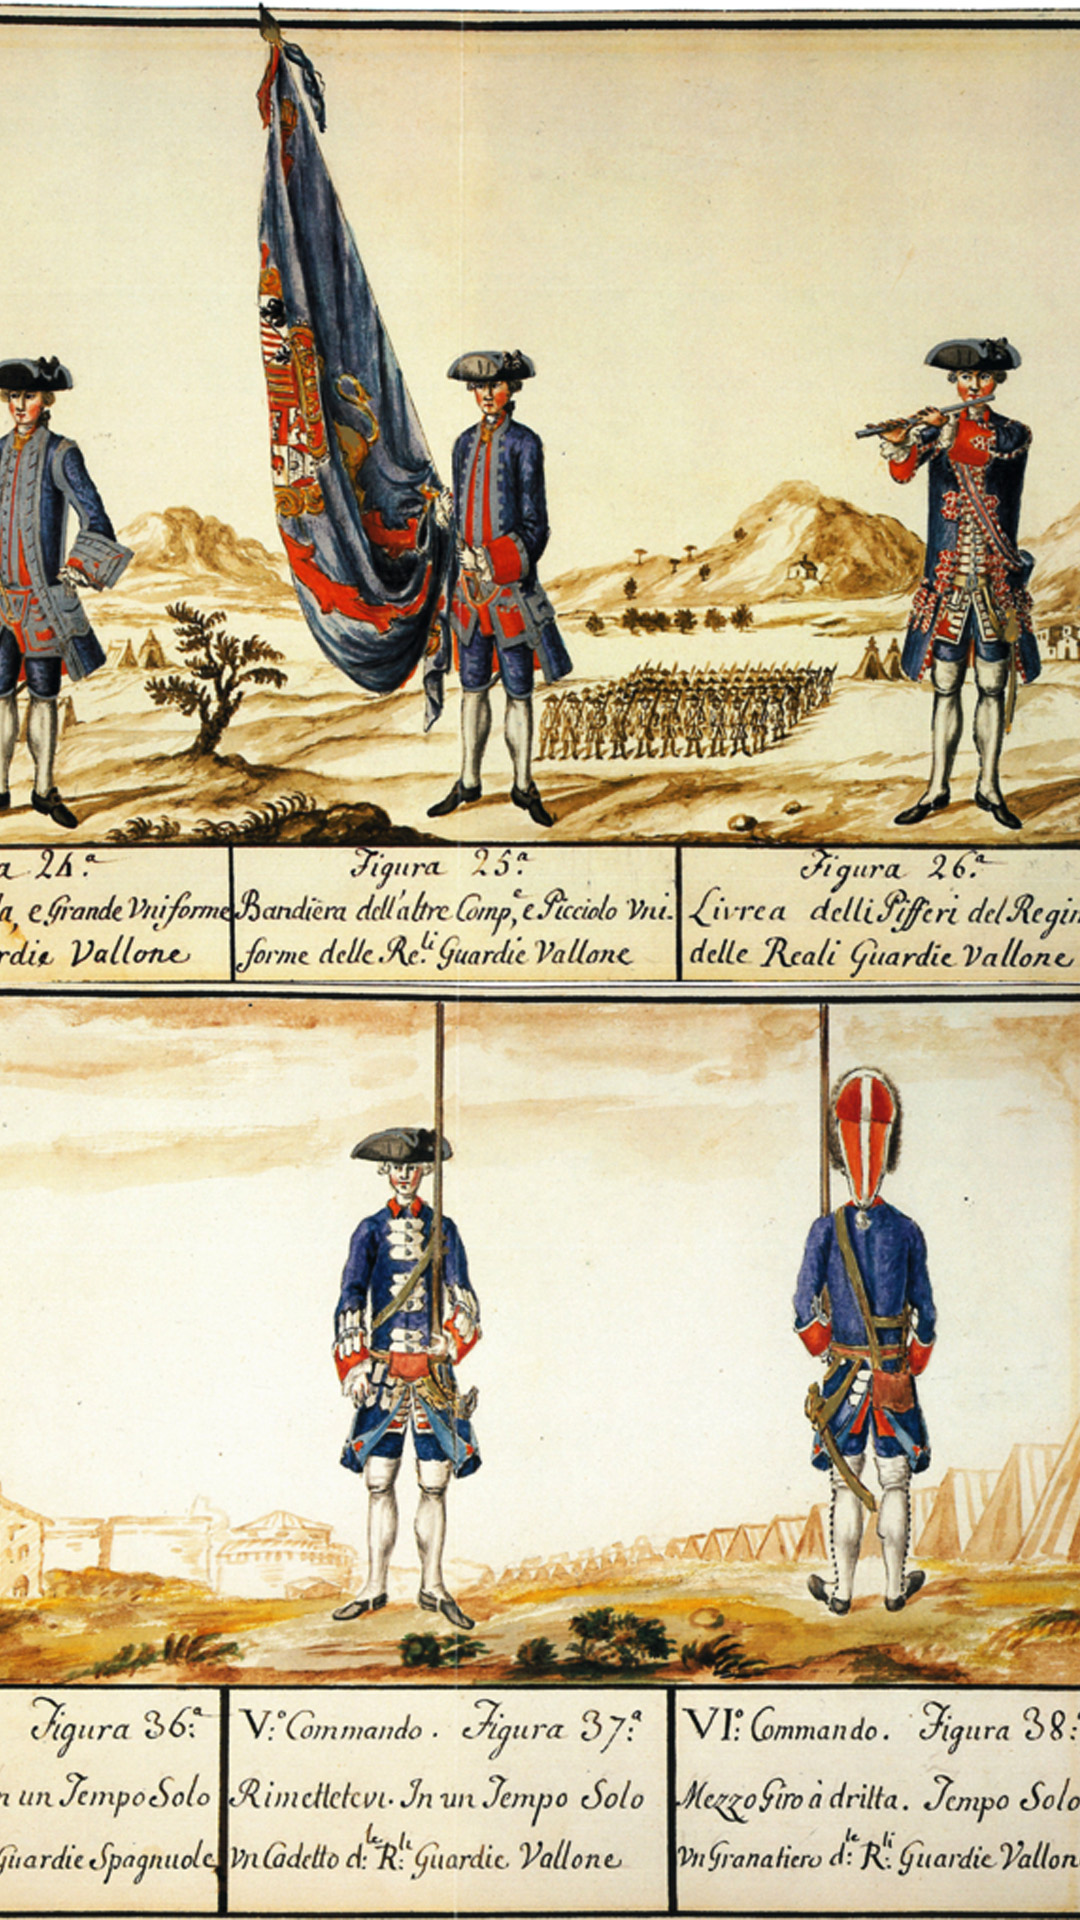 a 24.ª
la, e Grande Vniforme
rdie Vallone
Figura 25.ª
Bandiera dell'altre Comp,ᵉ e Picciolo Vni-
forme delle Re.ˡⁱ Guardie Vallone
Figura 26.ª
Livrea delli Pifferi del Regim
delle Reali Guardie Vallone
Figura 36.ª
n un Tempo Solo
Guardie Spagnuole
V.º Commando. Figura 37.ª
Rimettetevi. In un Tempo Solo
Vn Cadetto d:ˡᵉ R:ˡⁱ Guardie Vallone
VI.º Commando. Figura 38:
Mezzo Giro à dritta. Tempo Solo
Vn Granatiero d:ˡᵉ R:ˡⁱ Guardie Vallon